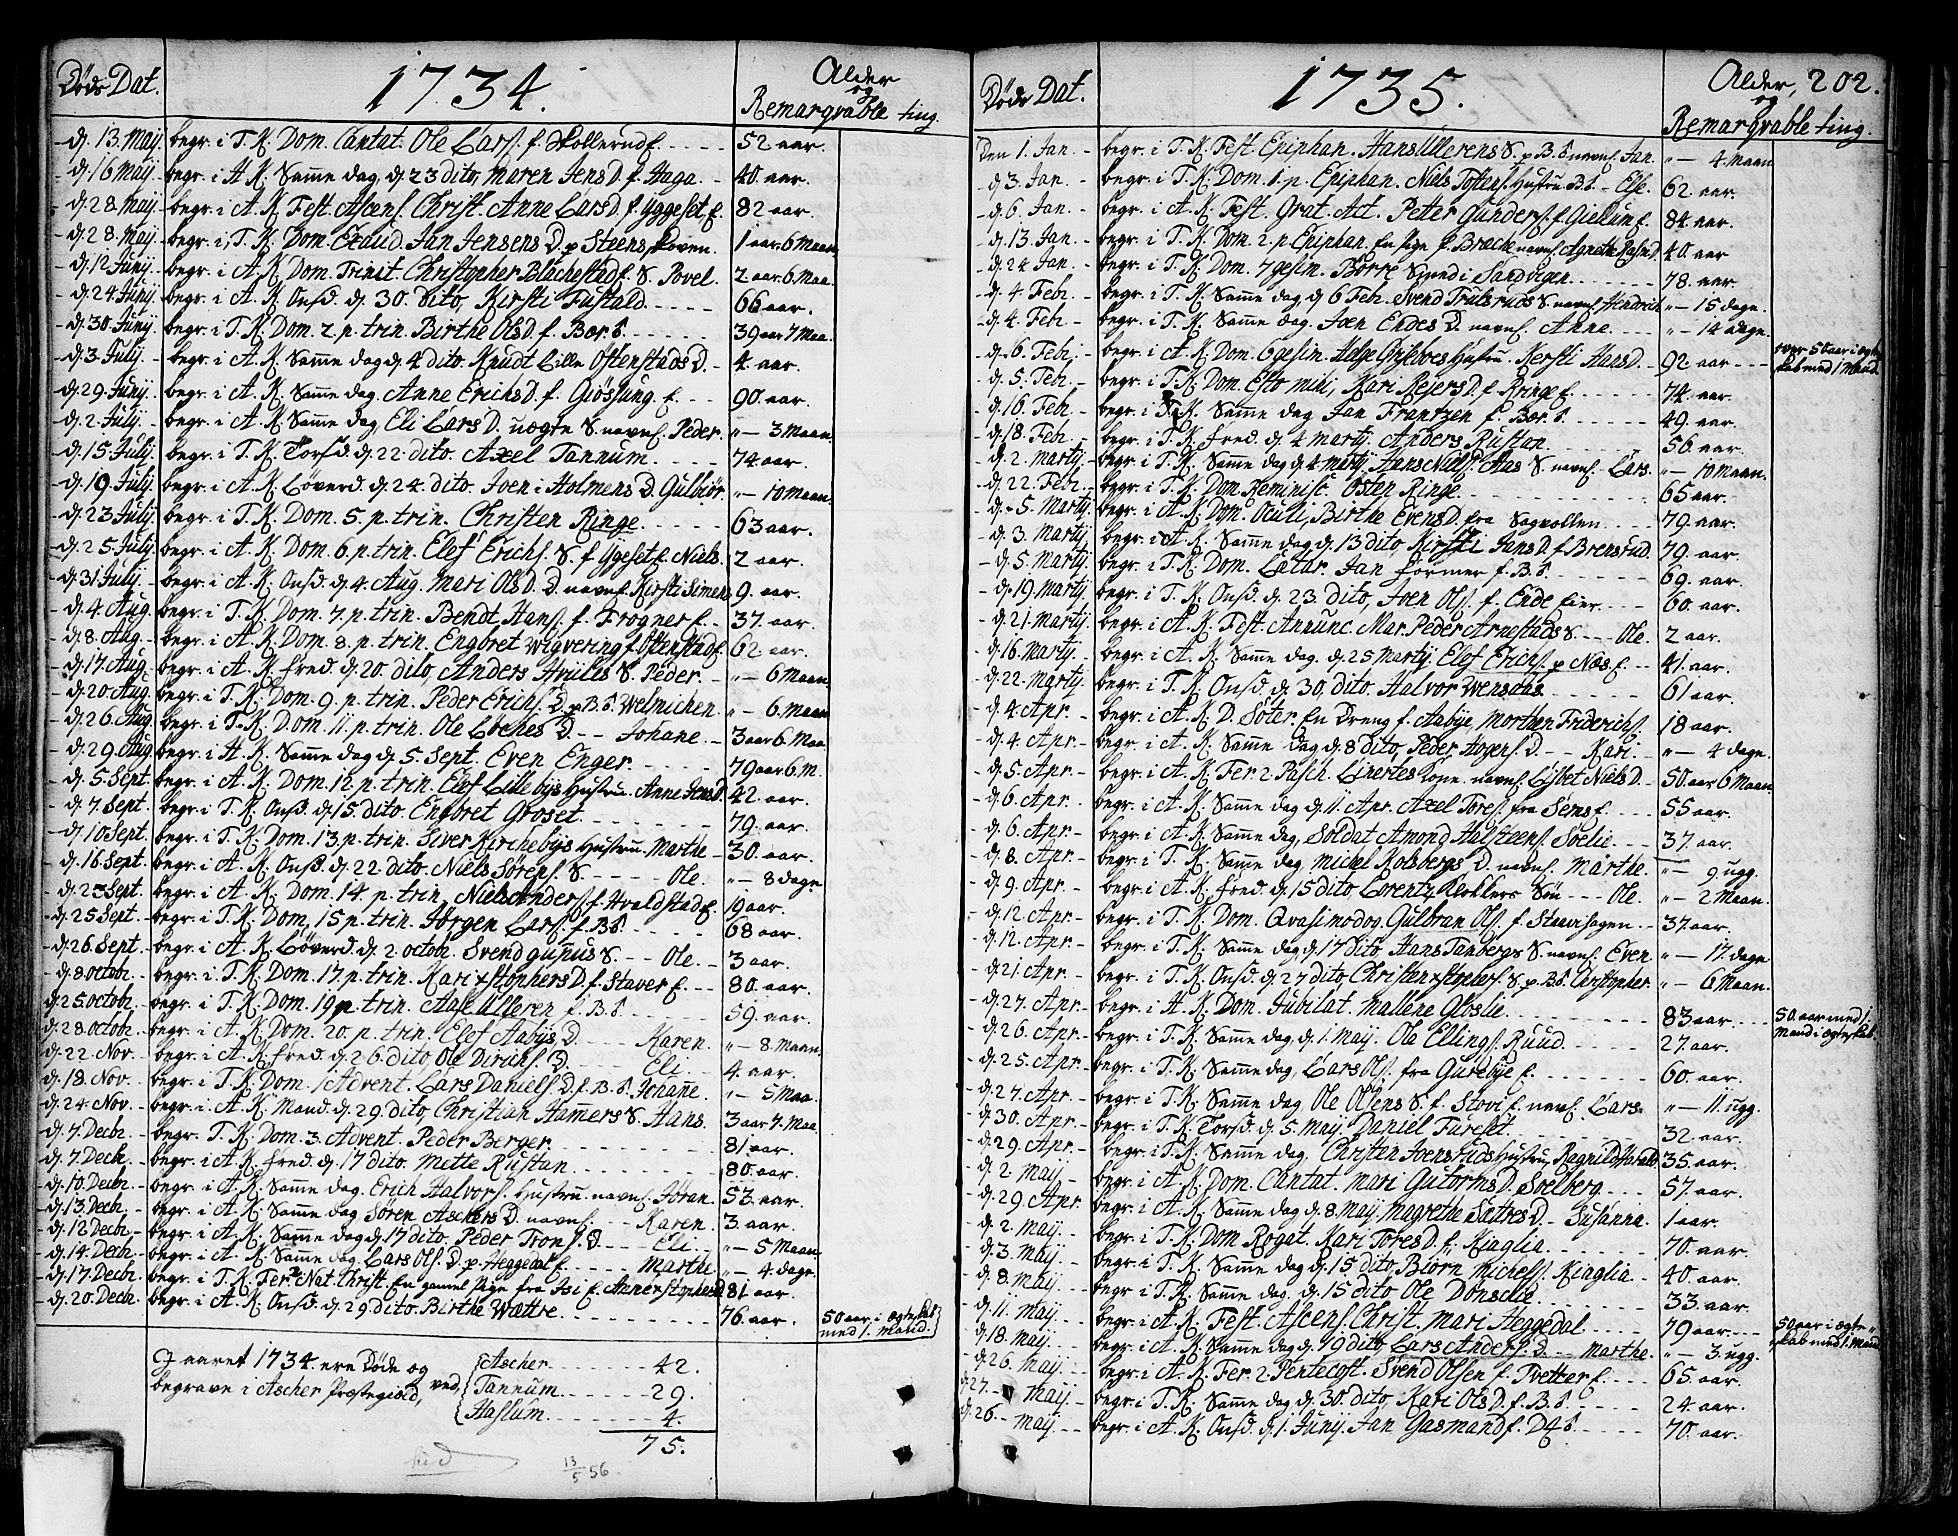 Døds Dat. 1734. Alder og Remarqvable ting.
d. 13. May begr. i T. K. Dom. Cantat. Ole Lars f. Skollerud 52 aar.
d. 16 May begr. i H. K. Samme dag, d. 23 dito, Maren Jens D. f. Haga 40. aar.
d. 28 May begr. i A. K. Fest. Ascens. Christ. Anne Lars D. f. Yggeset 82 aar.
d. 28 May begr. i T. K. Dom. Exaud. Jan Jensens D. p Steens skoven 1 aar 6 Maan
d. 12 Junij begr. i A. K. Dom. Trinit Christopher Blachestad S. Povel 2 aar. 6. Maa.
d. 24 Junij begr. i A. K. Onsd. d. 30. dito, Kirsti Fustald 66 aar.
d. 30 Junij begr. i T. K. Dom. 2. p. trin. Birthe Ols D. f. Bær 39 aar 7 Maa.
d. 3 July begr. i A. K. Samme dag d. 4 dito. Knudt Lille Ostenstads D. 4. aar.
d. 29 Junij begr. i A. K. Samme dag Anne Erichs D. f. Giøssung 90. aar.
d. 2 July begr. i A. K. Samme dag Eli Lars D. uægte S. navnl. Peder. " 3 Maan.
d. 15 July begr. i T. K. Torsd. d. 22. dito. Axel Tannum 74 aar.
d. 19 July begr. i A. K. Løverd. d. 24. dito. Joen i Holmens D. Gulbiør " 10 Maan
d. 23 July begr. i T. K. Dom. 5. p. trin. Christen Ringe 63 aar.
d. 25 July begr. i A. K. Dom. 6. p. trin. Elef Erichs. S. f. Yggeset Niels 2 aar.
d. 31 July begr. i A. K. Onsd. d. 4 Aug. Mari Ols D. D. navnl. Kirsti Simens 9. aar.
d. 4. Aug. begr. i T. K. Dom. 7. p. trin. Bendt Hans. f. Frogner 37. aar.
d. 8. Aug. begr. i A. K. Dom. 8. p. trin. Engbret Wigvering f. Ostenstad 62 aar.
d. 17 Aug. begr. i A. K. fred. d. 20. dito, Anders Hviils S. Peder. " 6 Maan
d. 20 Aug. begr. i T. K. Dom. 9. p. trin. Peder Erichs. D. p B. S. Welmichen " 6. Maan
d. 26. Aug. begr. i T. K. Dom. 11. p. trin. Ole Løches D. Johane 3 aar 6. Maa
d. 29 Aug. begr. i A. K. Samme dag d. 5. Sept. Even Enger 79 aar 6. M.
d. 5. Sept. begr. i A. K. Dom. 12 p. trin. Elef Lillebys Hustru Anne Jens D. 42. aar.
d. 7. Sept. begr. i T. K. Onsd. d. 15. dito. Engbret Groset 79. aar.
d. 10 Sept. begr. i T. K. Dom. 13. p. trin. Siver Kirchebys Hustru Marthe 30. aar.
d. 16 Sept. begr. i A. K. Onsd. d. 22. dito. Niels Sørens. S. Ole. " 8 dage
d. 23 Sept. begr. i A. K. Dom. 14. p. trin. Niels Anders f. Hvaldstad 19 aar.
d. 25 Sept. begr. i T. K. Dom. 15 p. trin. Jørgen Lars. f. B. S. 68 aar.
d. 26. Sept. begr. i A. K. Løverd. d. 2. octob. Svend gupus S. Ole. 3 aar.
d. 8 octob. begr. i T. K. Dom. 17. p. trin. Kari Xstophers D. f. Staver 80. aar.
d. 25. octob. begr. i T. K. Dom. 19 p. trin. Aase Ulleren f. B. S. 59. aar.
d. 28. octob. begr. i A. K. Dom. 20. p. trin. Elef Aabys D. Karen. " 8. Maan.
d. 22. Nov. begr. i A. K. fred. d. 26. dito Ole Dirichs. D. Eli. 4. aar.
d. 18. Nov. begr. i T. K. Dom. 1 Advent. Lars Daniels D. f. B. S. Johane. " 5 Maa.
d. 24. Nov. begr. i A. K. Mand. d. 29. dito, Christian Hamers S. Hans. 3 aar 7. Maa.
d. 7. Decb. begr. T. K. Dom. 3. Advent. Peder Berger. 81. aar.
d. 7. Decb. begr. i A. K. fred. d. 17 dito. Mette Rustan 80. aar.
d. 10. Decb. begr. i A. K. Samme dag. Erich Halvors. Hustru navnl. Jøran. 53. aar.
d. 13. Decb. begr. i A. K. Samme dag Søren Aschers D. navnl. Karen. 3. aar.
d. 12 Decb. begr. i A. K. Samme dag d. 17 dito. Peder Trons. D. Eli. " 5 Maan.
d. 14. Decb. begr. i A. K. Samme dag. Lars Ols. D. p. Heggedal Marthe " 4. dage.
d. 17. Decb. begr. i T. K. Fer. Nat. Christ. En gamel Pige fra Isi Anne Xstophers D. 81 aar.
d. 20. Decb. begr. i A. K. Onsd. d. 29. dito. Birthe Wattre 76. aar. 50 aar. i ægteskab med 1. Mand.
I aaret 1734 ere Døde og begrave i Ascher Præstegield, ved
Ascher 42.
Tannum 29.
Haslum 4.
75.
13/5 56
Døds Dat. 1735. Alder, og Remarqvable ting. 202.
Den 1. Jan. begr. i T. K. Fest. Epiphan. Hans Ullerens S. p B. S. navnl. Jan. " 4. Maan
d. 3. Jan. begr. i T. K. Dom. 1. p. Epiphan. Niels Tostens. Hustru B. S. Else. 62. aar.
d. 6. Jan. begr. i A. K. Fest. Grat. Act. Petter Gunders. f. Giellum 84. aar.
d. 13. Jan. begr. i T. K. Dom. 2. p. Epiphan. En Pige f. Bræck navnl. Agnethe Rasm D. 40. aar
d. 24 Jan. begr. i T. K. Dom. 7gesim. Børre Smed i Sandvigen 78. aar.
d. 4. Febr. begr. i T. K. Samme dag d. 6 Febr. Svend Trulsruds S. navnl. Hendrich " 15 dage.
d. 4. Feb. begr. i T. K. Samme dag. Joen Endes D. navnl. Anne " 14 dage
d. 6. Feb. begr. i A. K. Dom. 6gesim. Helge Gribbes Hustru Kersti Hans D. 92 aar over 50 aar i ægteskab med 1 Mand.
d. 5. Feb. begr. i T. K. Dom. Esto mihi, Kari Rejers D. f. Ringe 74. aar.
d. 16. Feb. begr. i T. K. Samme dag Jan Frantzen f. Bær S. 49. aar.
d. 18. Feb. begr. i T. K. fred. d. 4 martij Anders Rustan 56. aar.
d. 2. martij begr. i T. K. Samme dag d. 4 martij Hans Niels. Aas S. navnl. Lars. " 10 maan.
d. 22. Feb. begr. i T. K. Dom. Reminisc. Osten Ringe 65 aar.
d. 5. Martij begr. i A. K. Dom. Oculi, Birthe Evens D. fra Sogvollen 79. aar.
d. 3. Martij begr. i A. K. Samme dag d. 13 dito Kirsti Jans D. f. Brensrud 79. aar.
d. 5. Martij begr. i T. K. Dom. Lætar. Jan Førmer f. B. S. 69. aar.
d. 19. Martij begr. i T. K. Onsd. d. 23. dito, Joen Ols. f. Ende Eier 60. aar.
d. 21. Martij begr. i A. K. Fest. Annunc. Mar. Peder Arnestads S. Ole. 2 aar.
d. 16. Martij begr. i A. K. Samme dag. d. 25 Martij Elef Erichs. p Næs 41. aar.
d. 22. Martij begr. i T. K. Onsd. d. 30. dito. Halvor Wensaas 61 aar.
d. 4. Apr. begr. i A. K. D. Søter. En Dreng f. Aabye, Morthen Friderichs. 18 aar.
d. 4. Apr. begr. i A. K. Samme dag d. 8 dito, Peder Hogens. D. Kari. " 4 dage.
d. 5. Apr. begr. i A. K. Fer. 2. Pasch. Linertes Kone navnl. Lisbet Niels D. 50 aar 6 Maan
d. 6. Apr. begr. i A. K. Samme dag d. 11. Apr. Axel Tores. fra Sems 55 aar.
d. 6. Apr. begr. i A. K. Samme dag, Soldat Amond Halsteens. Søelie 37. aar.
d. 8. Apr. begr. i T. K. Samme dag Michel Kolsbergs D. navnl. Marthe. " 9. ugg.
d. 9. Apr. begr. i A. K. fred. d. 15 dito Lorentz Klokkers Søn Ole. " 2 Maan.
d. 12 Apr. begr. i T. K. Dom. Qvasimodog. Gulbran Ols. f. Staavihagen 37. aar.
d. 12. Apr. begr. i T. K. Samme dag d. 17 dito, Hans Tanbergs S. navnl. Even " 17. dage
d. 21. Apr. begr. i T. K. Onsd. d. 27 dito, Christen Xstophers. S. p. B. S. Christopher. " 6 Maan.
d. 27. Apr. begr. i A. K. Dom. Jubilat. Mallene Gloslie 83 aar. 50. aar med 1. Mand i ægteskab.
d. 26. Apr. begr. i T. K. Samme dag, d. 1. May. Ole Ellings. Ruud 27. aar.
d. 25. Apr. begr. i T. K. Samme dag, Lars Ols. fra Gurebye 60. aar.
d. 27. Apr. begr. i T. K. Samme dag Ole Olsens S. f. Stovi navnl. Lars " 11. ugg.
d. 30. Apr. begr. i T. K. Torsd. d. 5. May. Daniel Tureset. 32. aar.
d. 29. Apr. begr. i T. K. Samme dag Christen Joensruds Hustru, Ragnild Harald D. 35. aar.
d. 2. May begr. i A. K. Dom. Cantat. Mari Gutorms D. Soelberg 57. aar.
d. 29. Apr. begr. i A. K. Samme dag d. 8. May Magrethe Sætres D. Susanna. 1 aar.
d. 2. May begr. i T. K. Dom. Rogat. Kari Tores D. f. Kiaglia. 70. aar.
d. 3. May begr. i T. K. Samme dag d. 15 dito Biørn Michels. Kiaglia 40. aar.
d. 8. May begr. i A. K. Samme dag. d. 15 dito Ole Donselie 33. aar.
d. 11. May begr. i A. K. Fest. Ascens. Christ. Mari Heggedal 79 aar. 50 aar i ægteskab med 1. Mand
d. 18. May begr. i A. K. Samme dag d. 19 dito Lars Anders. D. Marthe. " 3. ugg.
d. 26. May begr. i A. K. Fer. 2. Pentecost. Svend Olsen f. Tvetter 65. aar.
d. 27. May begr. i T. K. Samme dag d. 30 dito. Kari Ols D. f. B. S. 24. aar.
d. 26. May begr. i A. K. Onsd. d. 1. Junij. Jan Gasmand f. D. S. 70. aar.